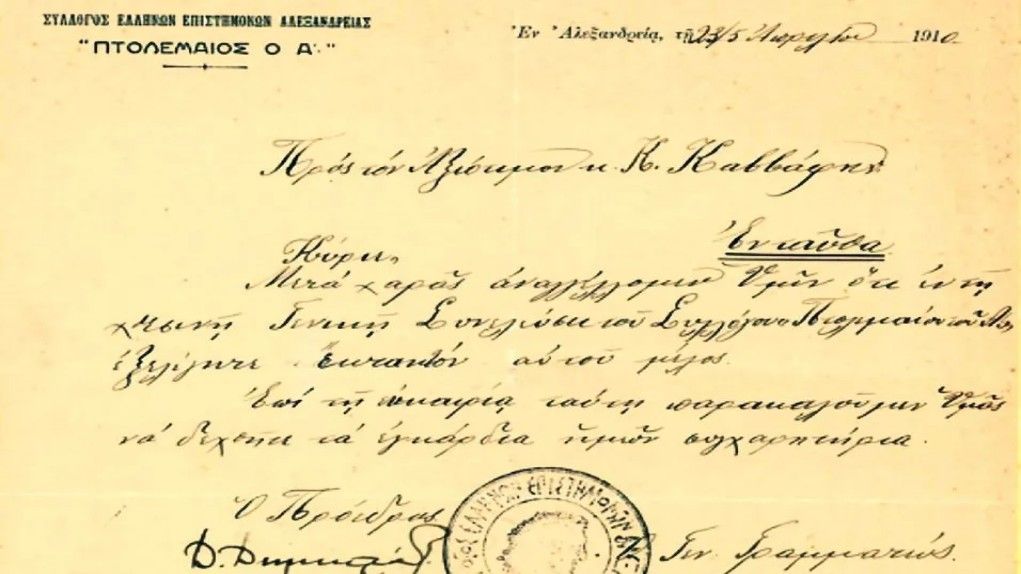 ΣΥΛΛΟΓΟΣ ΕΛΛΗΝΩΝ ΕΠΙΣΤΗΜΟΝΩΝ ΑΛΕΞΑΝΔΡΕΙΑΣ
"ΠΤΟΛΕΜΑΙΟΣ Ο Α'."
Ἐν Ἀλεξανδρείᾳ, τῇ 23/5 Ἀπριλίου 1910
Πρός τόν Ἀξιότιμον κ. Κ. Καββάφην
Ἐνταῦθα
Κύριε,
Μετά χαρᾶς ἀναγγέλλομεν Ὑμῖν ὅτι ἐν τῇ
χθεσινῇ Γενικῇ Συνελεύσει τοῦ Συλλόγου Πτολεμαίου τοῦ Α,
ἐξελέγητε ἔκτακτον αὐτοῦ μέλος.
Ἐπί τῇ εὐκαιρίᾳ ταύτῃ παρακαλοῦμεν Ὑμᾶς
νά δεχθῆτε τά ἐγκάρδια ἡμῶν συγχαρητήρια.
Ὁ Πρόεδρος
ΕΛΛΗΝΩΝ ΕΠΙΣΤΗΜΟΝΩΝ
Γεν. Γραμματεύς.